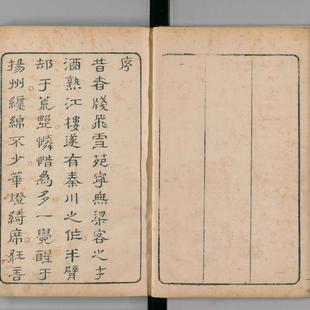 序
昔春牋飛雪苑寧無梁客之才
酒熟江樓遂有秦川之作半臂
却于荒墅憐惜為多一覺醒于
揚州纏綿不少華燈綺席狂吾